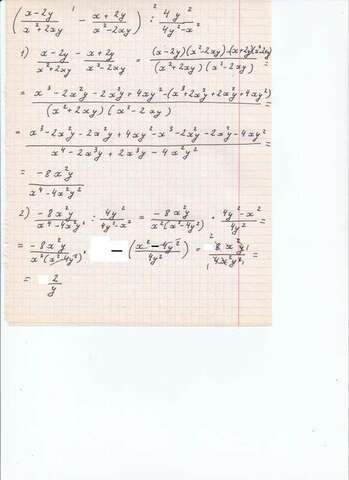 (x-2y / x²+2xy ¹- x+2y / x²-2xy) ²: 4y² / 4y²-x²
1) x-2y / x²+2xy - x+2y / x²-2xy = (x-2y)(x²-2xy)-(x+2y)(x²+2xy) / (x²+2xy)(x²-2xy) =
= x³-2x²y-2x²y+4xy²-(x³+2x²y+2x²y+4xy²) / (x²+2xy)(x²-2xy) =
= x³-2x²y-2x²y+4xy²-x³-2x²y-2x²y-4xy² / x⁴-2x³y+2x³y-4x²y² =
= -8x²y / x⁴-4x²y²
2) -8x²y / x⁴-4x²y² : 4y² / 4y²-x² = -8x²y / x²(x²-4y²) · 4y²-x² / 4y² =
= -8x²y / x²(x²-4y²) · -(x²-4y² / 4y²) = ²8x²y¹ / ₁4x²y²₁ =
= 2 / y